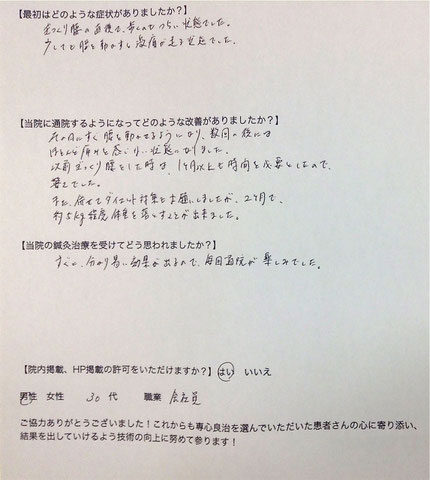 【最初はどのような症状がありましたか？】
ぎっくり腰の直後で、歩くのもつらい状態でした。
少しでも腰を動かすと激痛が走る状態でした。
【当院に通院するようになってどのような改善がありましたか？】
その日にすぐ腰を動かせるようになり、数回の後には
ほとんど痛みを感じない状態になりました。
以前ぎっくり腰をした時は、1ヶ月以上も時間を必要としたので、
驚きでした。
また、併せてダイエット対策もお願いしましたが、2ヶ月で、
約5kg程度体重を落とすことが出来ました。
【当院の鍼灸治療を受けてどう思われましたか？】
すぐに、分かり易い効果が出るので、毎回通院が楽しみでした。
【院内掲載、HP掲載の許可をいただけますか？】 はい いいえ
男性 女性 30代 職業 会社員
ご協力ありがとうございました！これからも専心良治を選んでいただいた患者さんの心に寄り添い、
結果を出していけるよう技術の向上に努めて参ります！